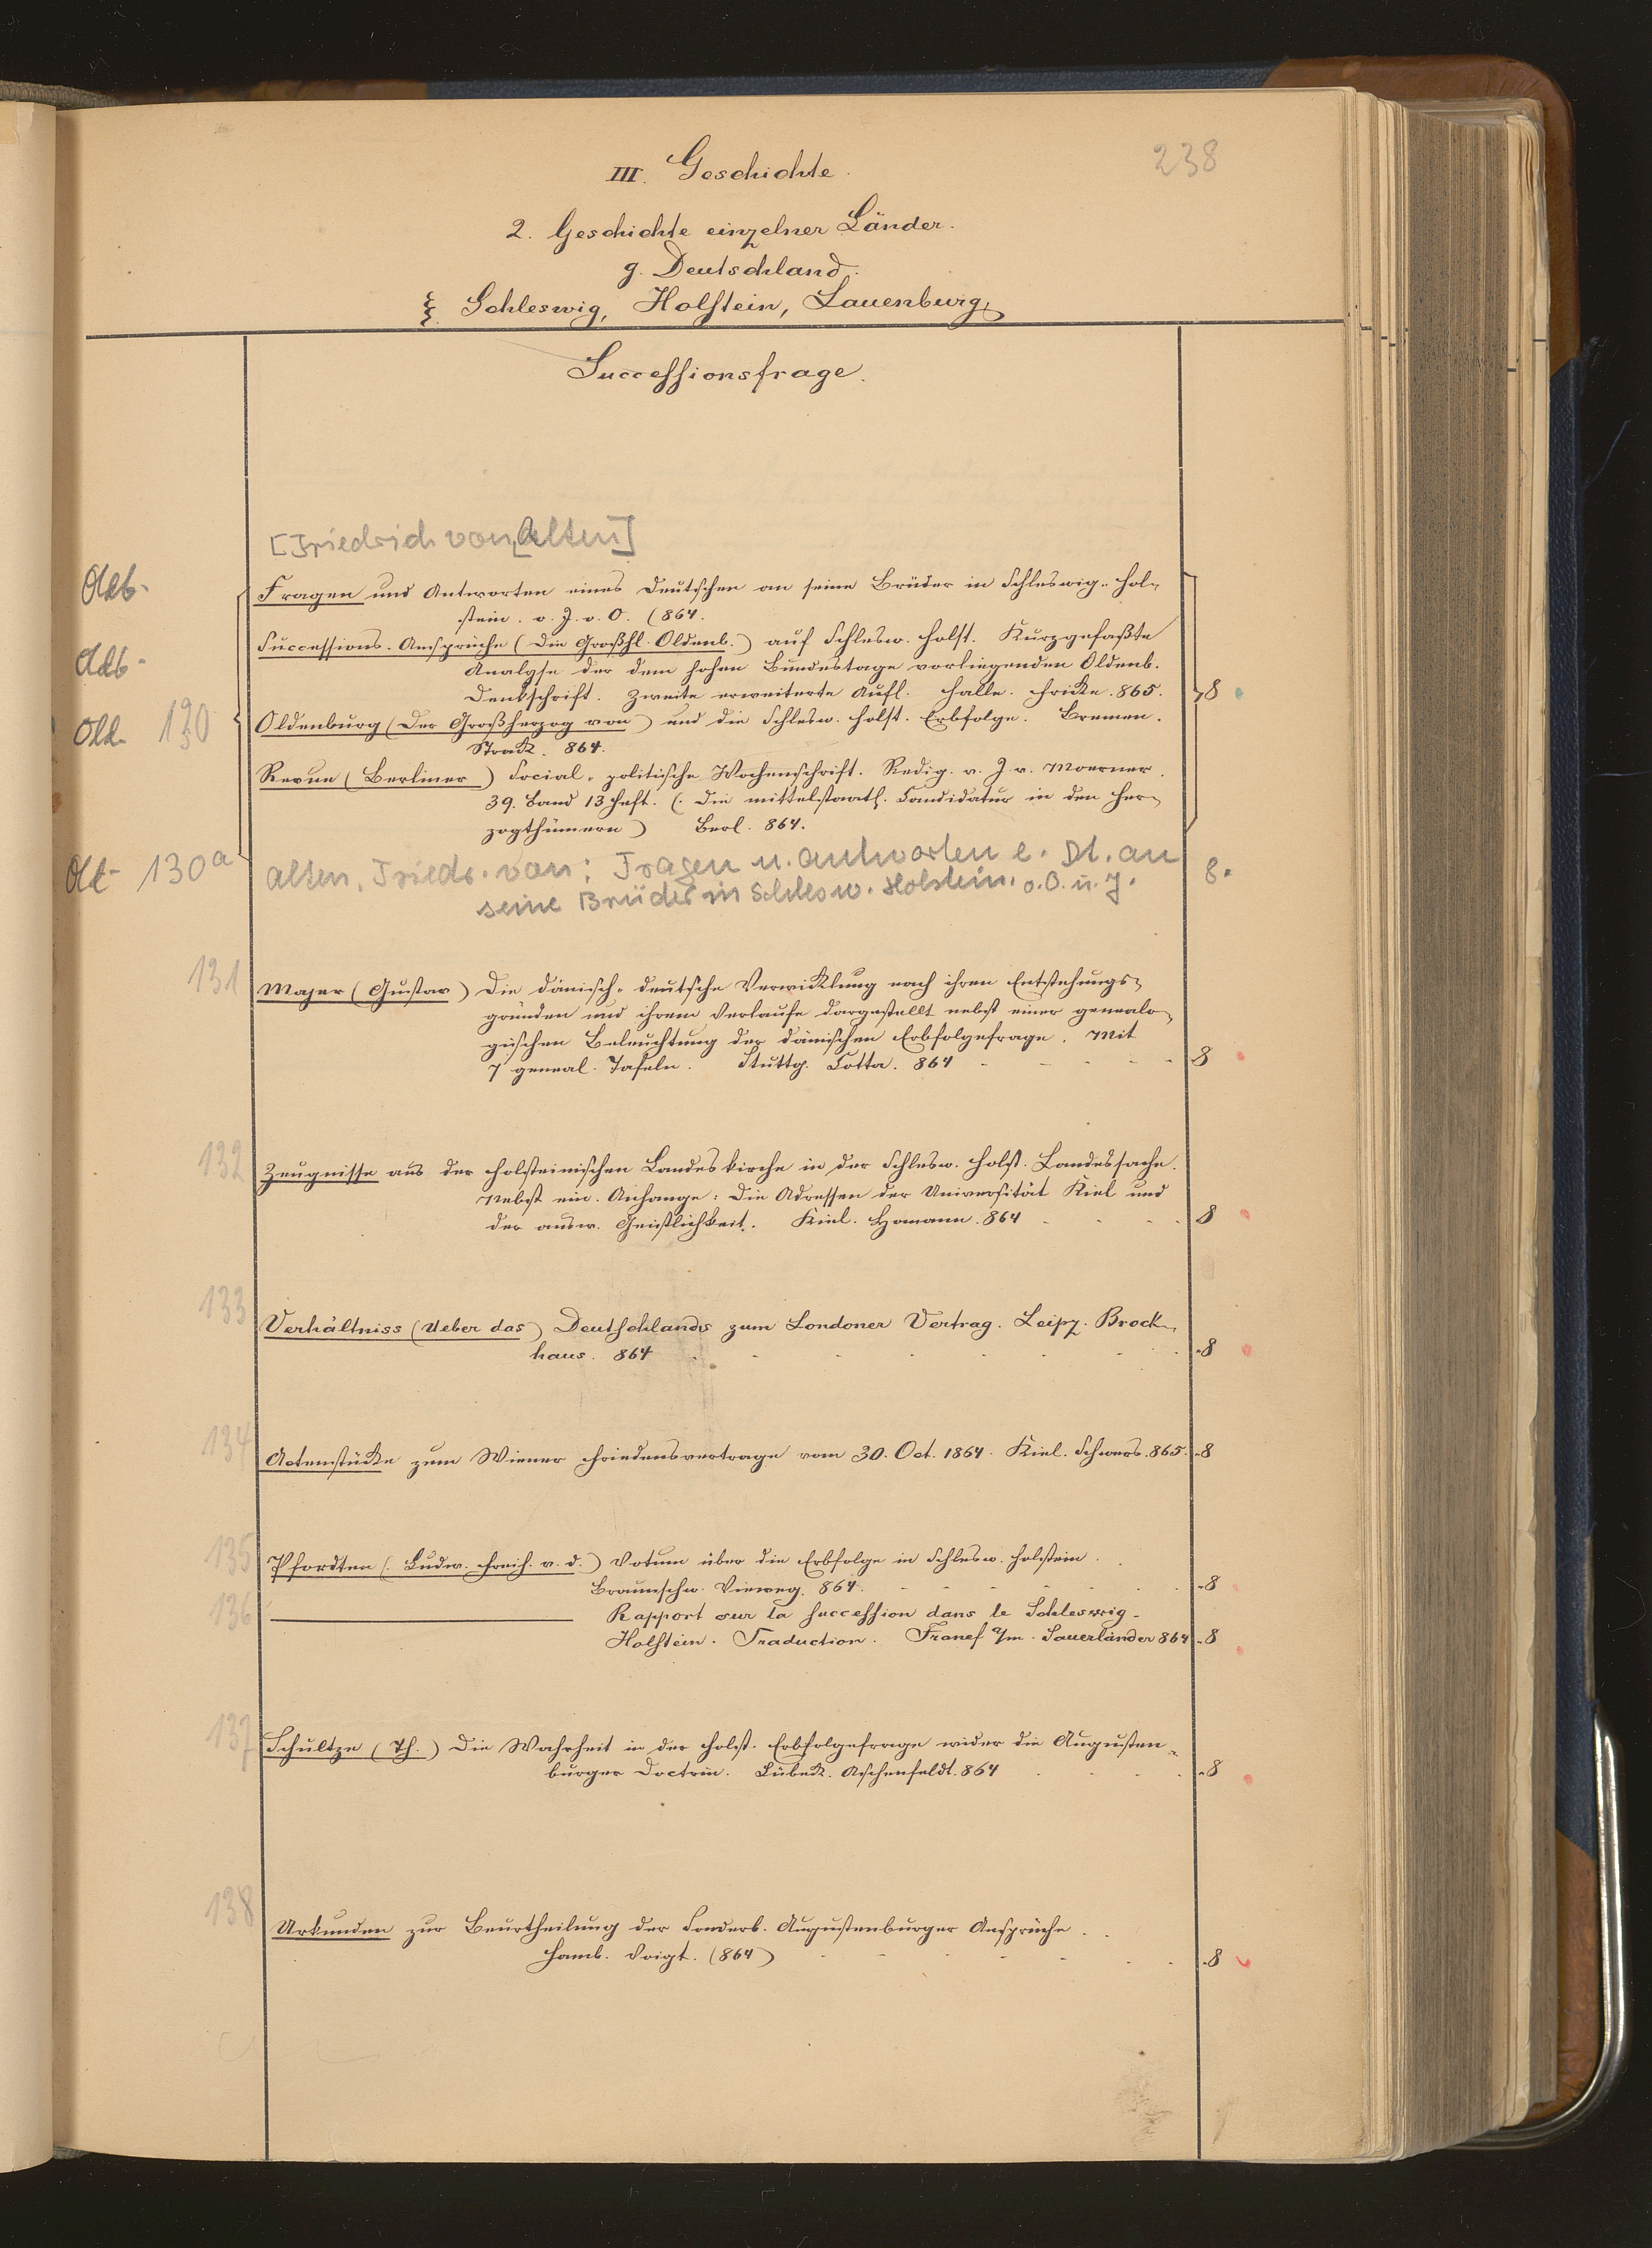 238
III. Geschichte.
2. Geschichte einzelner Länder.
g. Deutschland.
ξ. Schleswig, Holstein, Lauenburg
Successionsfrage.
[Friedrich von Alten]
Fragen und Antworten eines Deutschen an seine Brüder in Schleswig-Hol-
stein. o. J. o. O. (864.
Successions-Ansprüche (Die Großhl. Oldenb.) auf Schlesw. Holst. Kurzgefaßte
Analyse der dem hohen Bundestage vorliegenden Oldenb.
Denkschrift. Zweite erweiterte Aufl. Halle. Fricke. 865. 8
Old. 130 Oldenburg (Der Großherzog von) und die Schlesw. Holst. Erbfolge. Bremen.
Strack. 864.
Revue (Berliner) Social-politische Wochenschrift. Redig. v. J. v. Moerner.
39. Band 13 Heft. (: Die mittelstaatl. Candidatur in den Her-
zogthümern) Berl. 864.
130a Alten, Friedr. von: Fragen u. Antworten e. Dt. an 8.
seine Brüder in Schlesw. Holstein. o. O. u. J.
131 Majer (Gustav) Die dänisch-deutsche Verwicklung nach ihren Entstehungs-
gründen und ihrem Verlaufe dargestellt nebst einer genealo-
gischen Beleuchtung der dänischen Erbfolgefrage. Mit
7 geneal. Tafeln. Stuttg. Cotta. 864 8
132 Zeugnisse aus der holsteinischen Landeskirche in der Schlesw. Holst. Landessache.
Nebst ein. Anhange: Die Adressen der Universität Kiel und
der ausw. Geistlichkeit. Kiel. Homann. 864 8
133 Verhältniss (Ueber das) Deutschlands zum Londoner Vertrag. Leipz. Brock-
haus. 864 8
134 Actenstücke zum Wiener Friedensvertrage vom 30. Oct. 1864. Kiel. Schwers. 865. 8
135 Pfordten (: Ludw. Freih. v. d.) Votum über die Erbfolge in Schlesw. Holstein.
Braunschw. Vieweg. 864. 8
136 Rapport sur la succession dans le Schleswig-
Holstein. Traduction. Francf a/m. Sauerländer 864 8
137 Schultze (Th.) Die Wahrheit in der Holst. Erbfolgefrage wider die Augusten-
burger Doctrin. Lübeck. Aschenfeldt. 864 8
138 Urkunden zur Beurtheilung der Sonderb. Augustenburger Ansprüche.
Hamb. Voigt. (864) 8